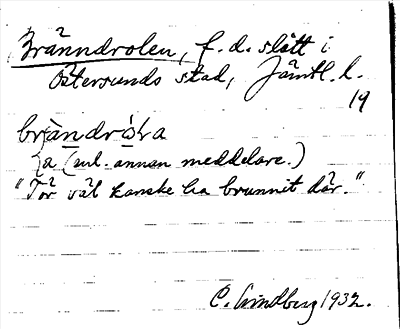 Bränndrolen, f. d. slått i
Östersunds stad, Jämtl. l.
19
brändròla
{a (enl. annan meddelare.)
"Tör väl kanske ha brunnit där."
C. Lindberg 1932.